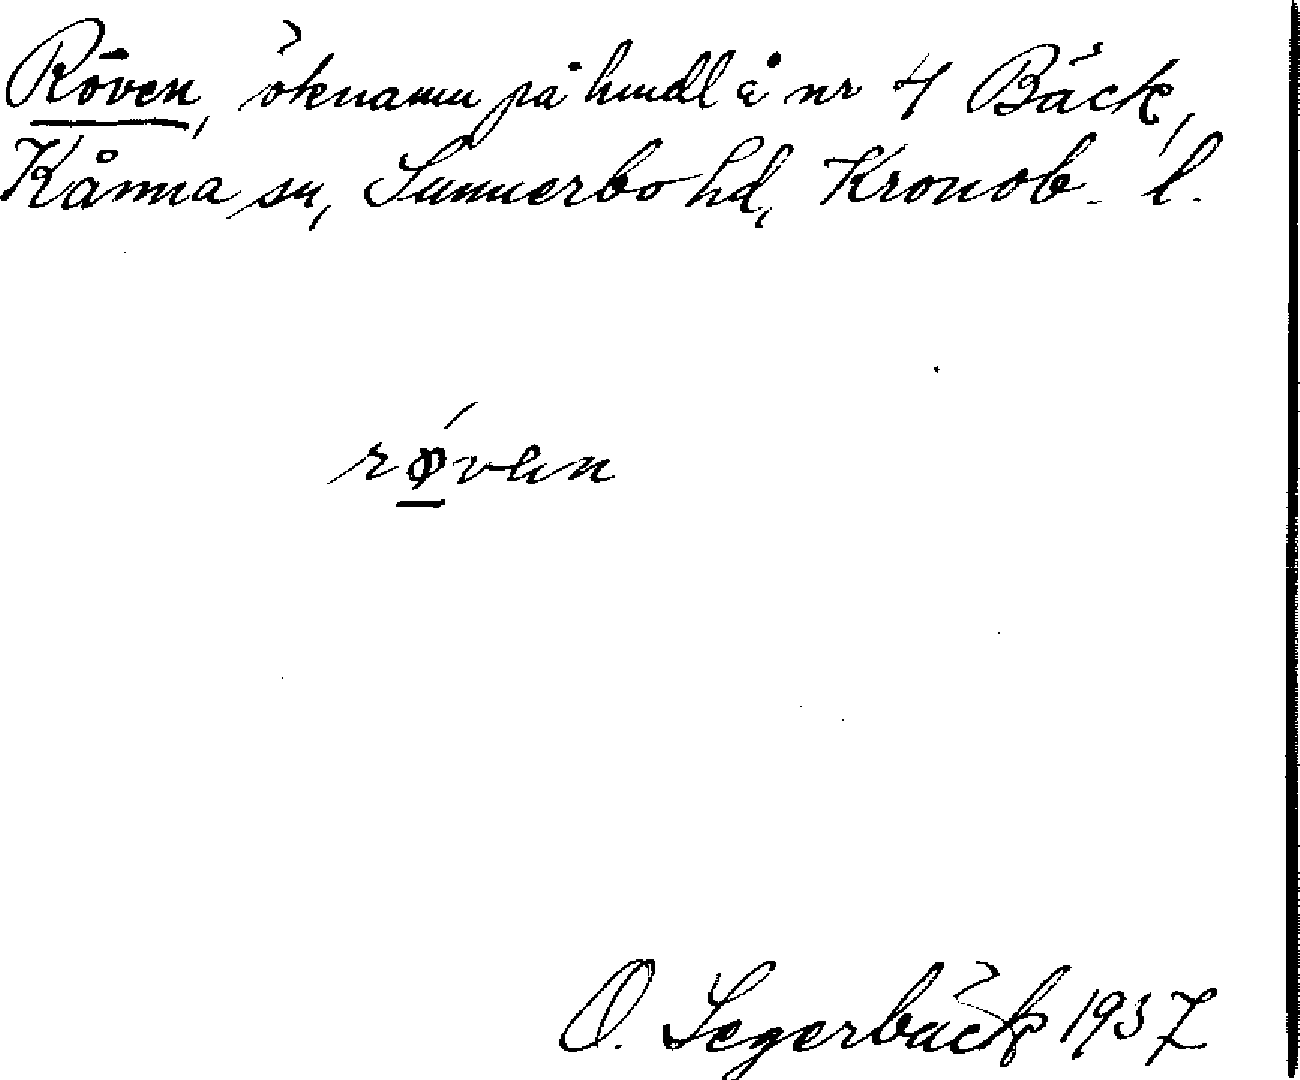 Röven, öknamn på hmdl å nr 4 Bäck,
Kånna sn, Sunnerbo hd, Kronob. l.
rǿvən
O. Segerbäck 1937